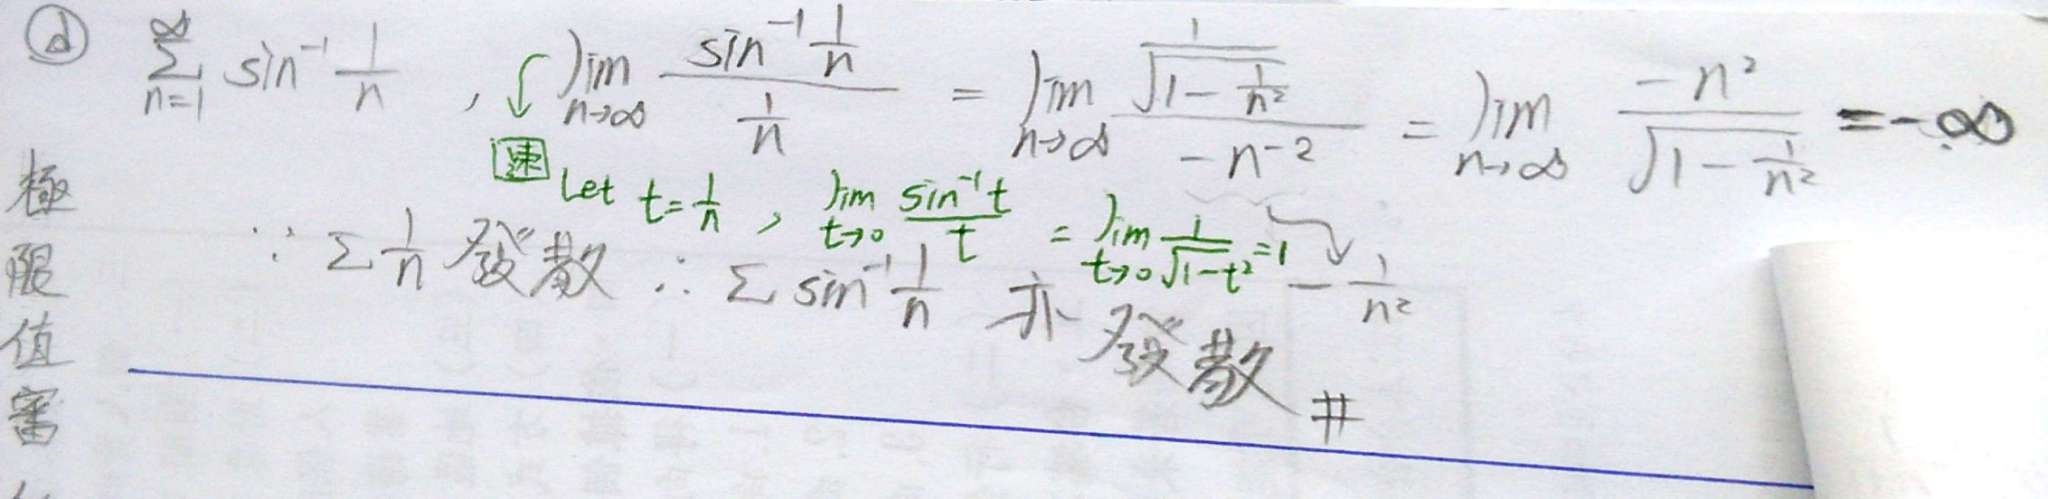 ⓓ ∑_{n=1}^{∞} sin⁻¹ 1/n , lim_{n→∞} (sin⁻¹ 1/n)/(1/n) = lim_{n→∞} (1/√(1-1/n²))/(-n⁻²) = lim_{n→∞} -n²/√(1-1/n²) = -∞
速 Let t=1/n , lim_{t→0} sin⁻¹t/t = lim_{t→0} 1/√(1-t²) =1
∵ Σ 1/n 發散 ∴ Σ sin⁻¹ 1/n 亦發散 #
- 1/n²
極限值審